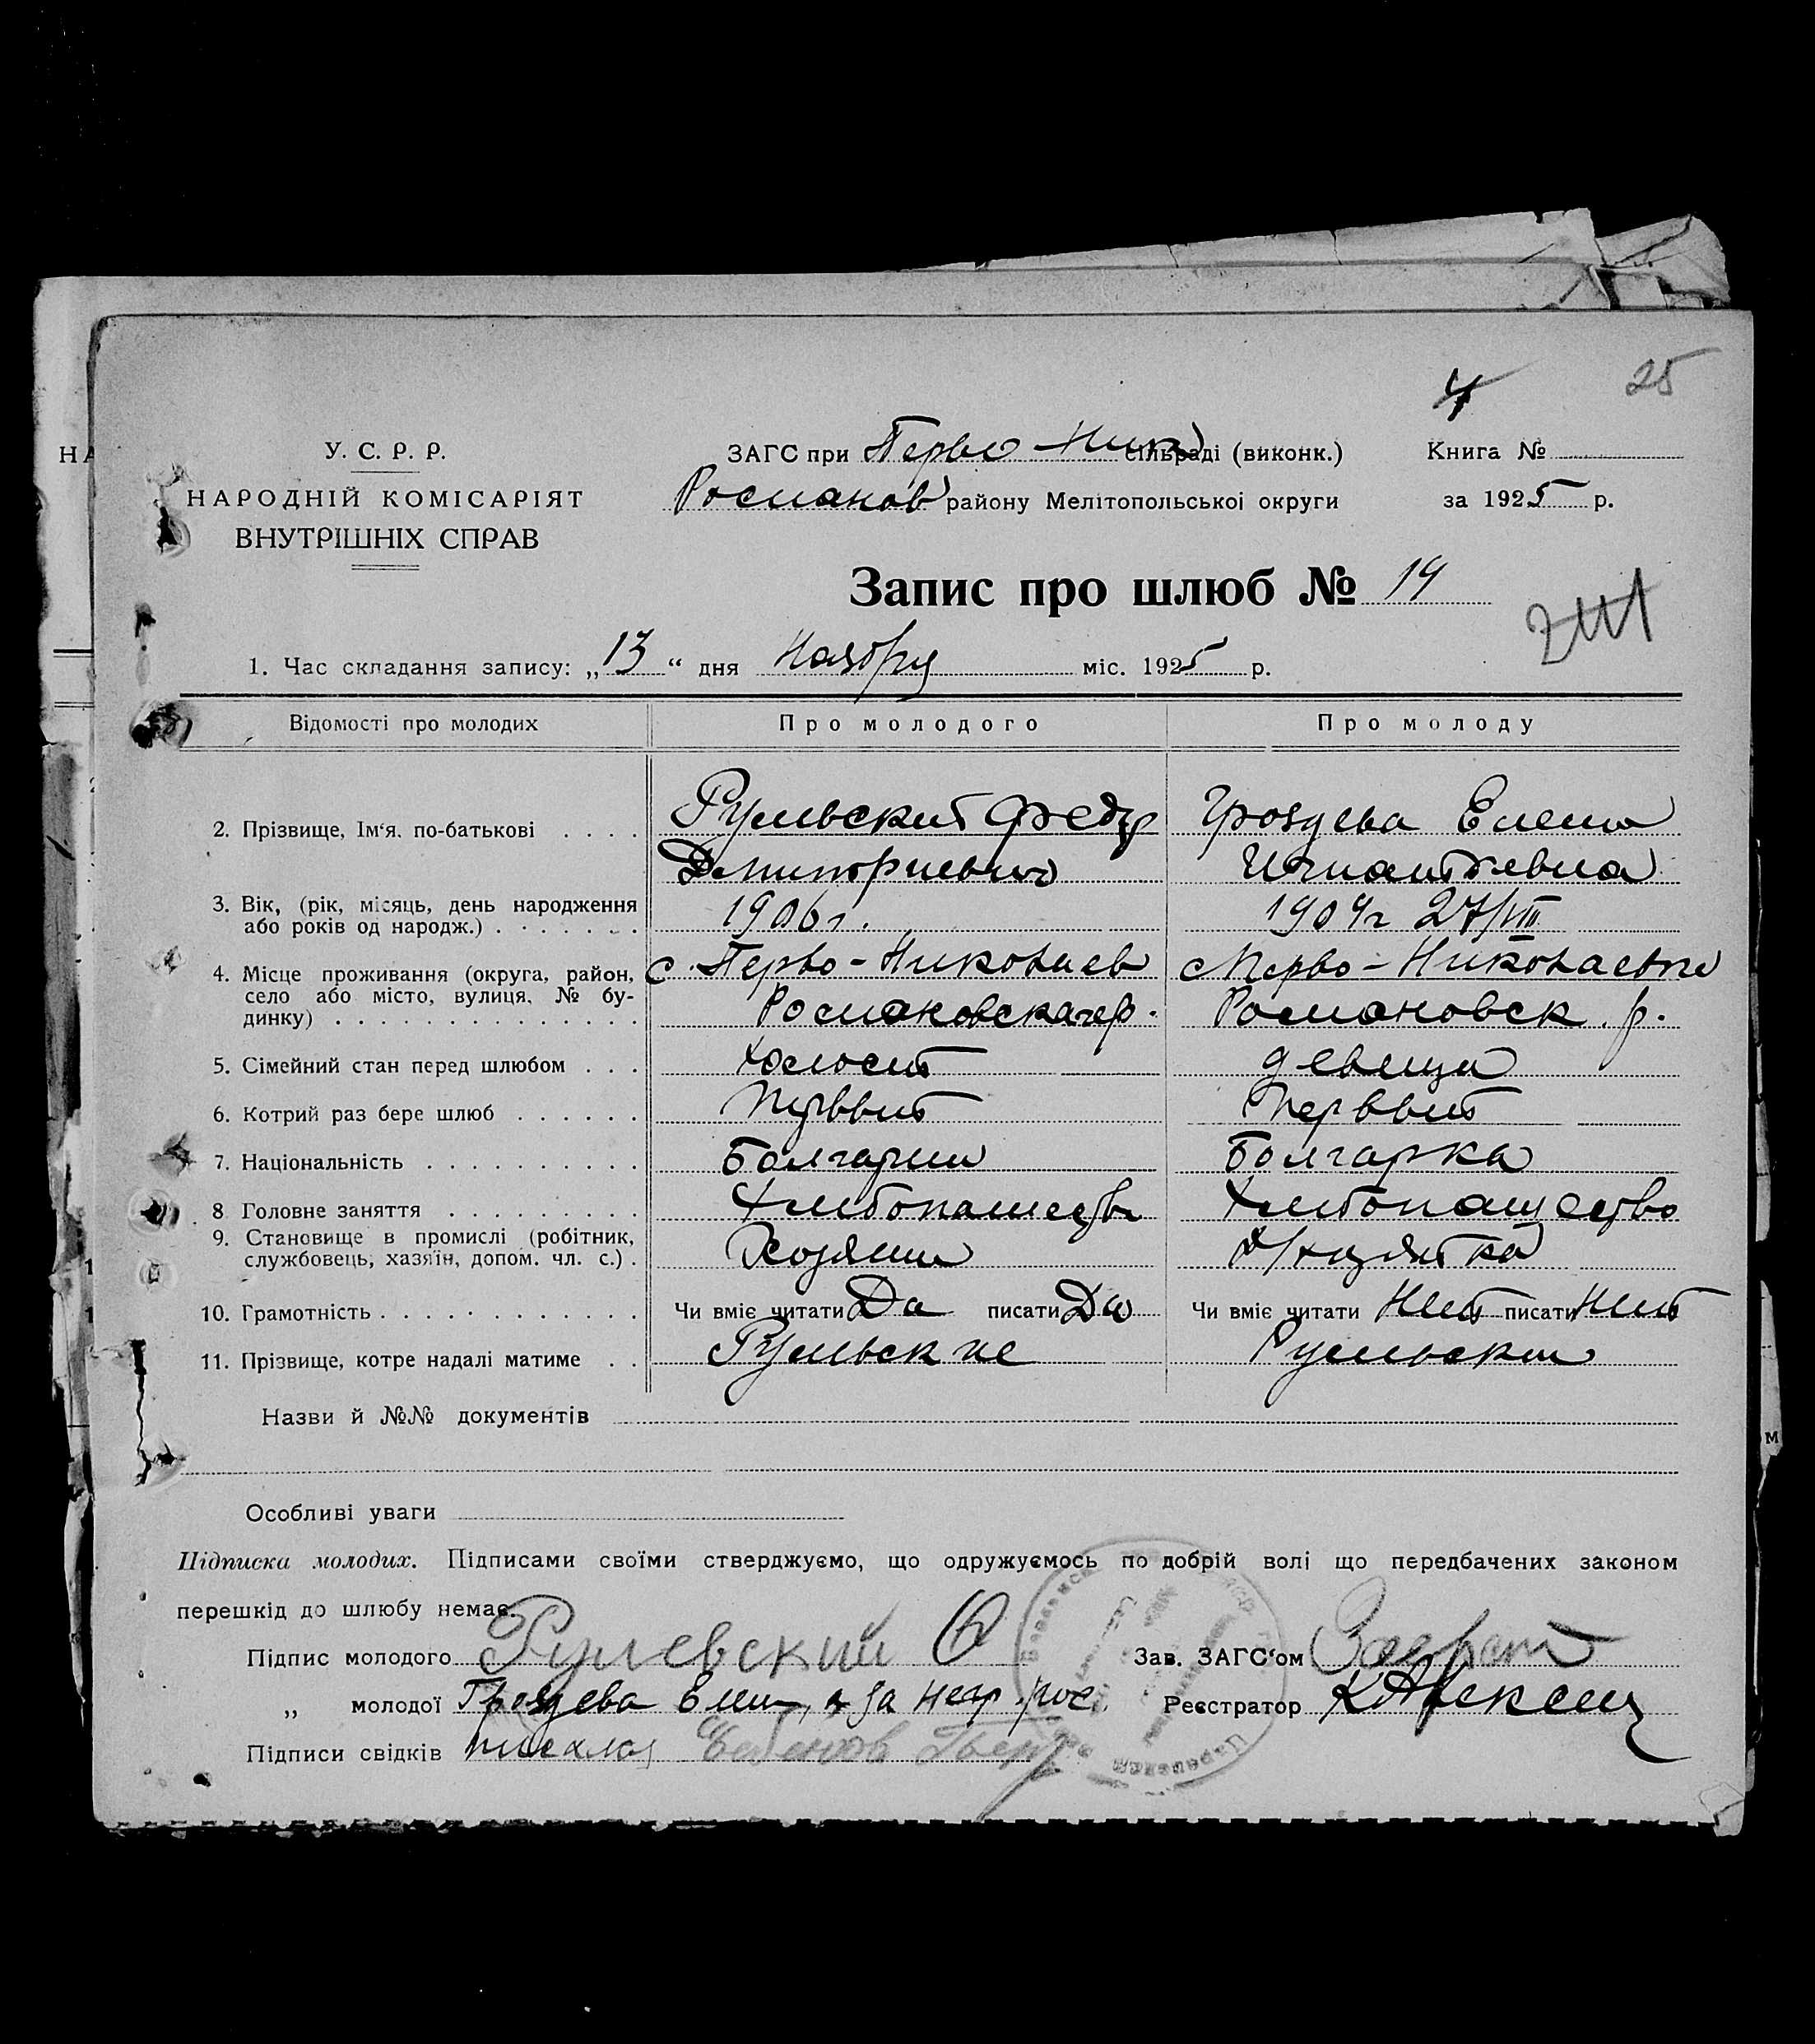 25
4
У. С. Р. Р.
НАРОДНІЙ КОМІСАРІЯТ
ВНУТРІШНІХ СПРАВ
ЗАГС при Перво-Ник сільраді (виконк.)
Романов району Мелітопольської округи
Книга №
за 1925 р.
Запис про шлюб № 14
1. Час складання запису: „13“ дня Ноября міс. 1925 р.
Відомості про молодих
Про молодого
Про молоду
2. Прізвище, Ім‘я, по-батькові . . . .
Рульвский Федор
Гроздева Елена
Дмитриевич
Игнатьевна
3. Вік, (рік, місяць, день народження
або років од народж.)
1906 г.
1904 г 27/VIII
4. Місце проживання (округа, район,
село або місто, вулиця, № бу-
динку)
с. Перво-Николаев
Романовскаго р.
с Перво-Николаевке
Романовск. р.
5. Сімейний стан перед шлюбом . . .
холост
девица
6. Котрий раз бере шлюб
Перввит
Перввит
7. Національність
Болгарин
Болгарка
8 Головне заняття
Хлебопашество
Хлебопащество
9. Становище в промислі (робітник,
службовець, хазяїн, допом. чл. с.) .
Хозяин
10. Грамотність
Чи вміє читати Да писати Да
Чи вміє читати Нет писати Нет
11. Прізвище, котре надалі матиме . .
Рульвские
Рульвские
Назви й №№ документів
Особливі уваги
Підписка молодих. Підписами своїми стверджуємо, що одружуємось по добрій волі що передбачених законом
перешкід до шлюбу немає.
Підпис молодого Рулевский
Зав. ЗАГС‘ом
„ молодої Гроздева Елен, а за негр. рос.
Реєстратор К Алексенц
Підписи свідків